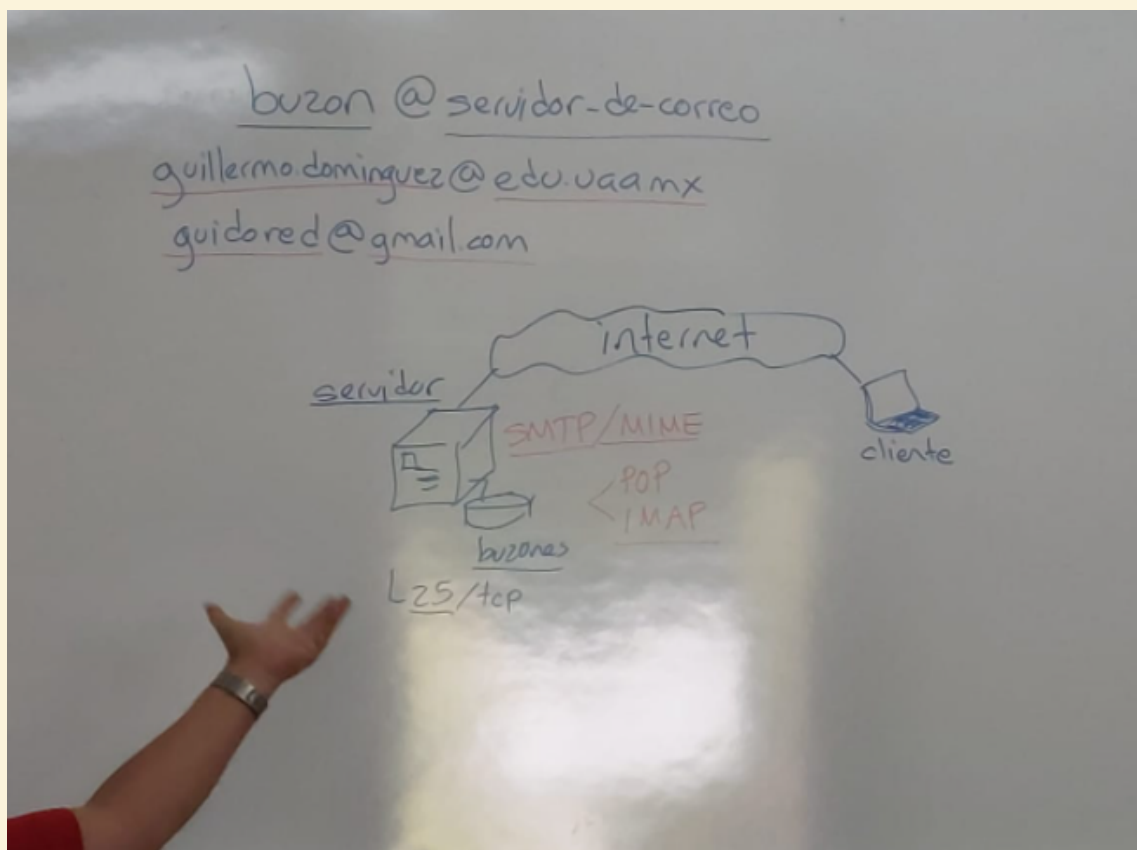 buzon @ servidor-de-correo
guillermo.dominguez@edu.uaa.mx
guidored@gmail.com
internet
servidor
SMTP/MIME
cliente
POP
IMAP
buzones
L25/tcp